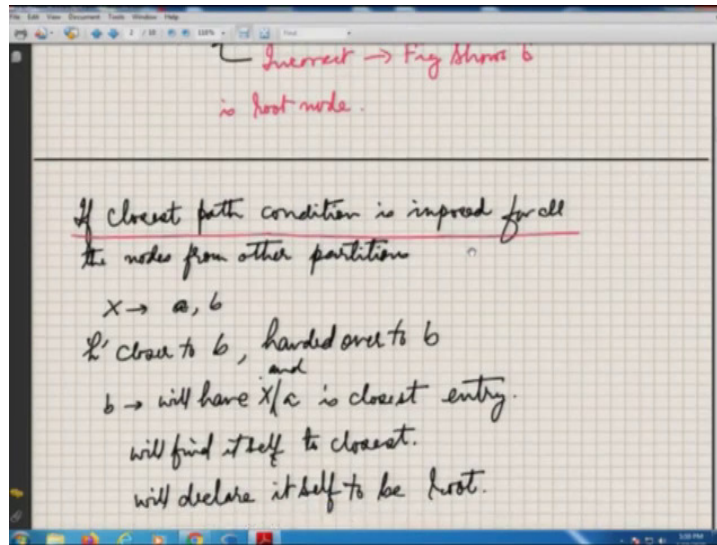 File Edit View Document Tools Window Help
2 / 10 110% Find
Incorrect → Fig shows b
is root node.
If closest path condition is imposed for all
the nodes from other partitions
X → a, b
closer to b, handed over to b
and
b → will have X/a is closest entry.
will find itself to closest.
will declare itself to be root.
5:08 PM